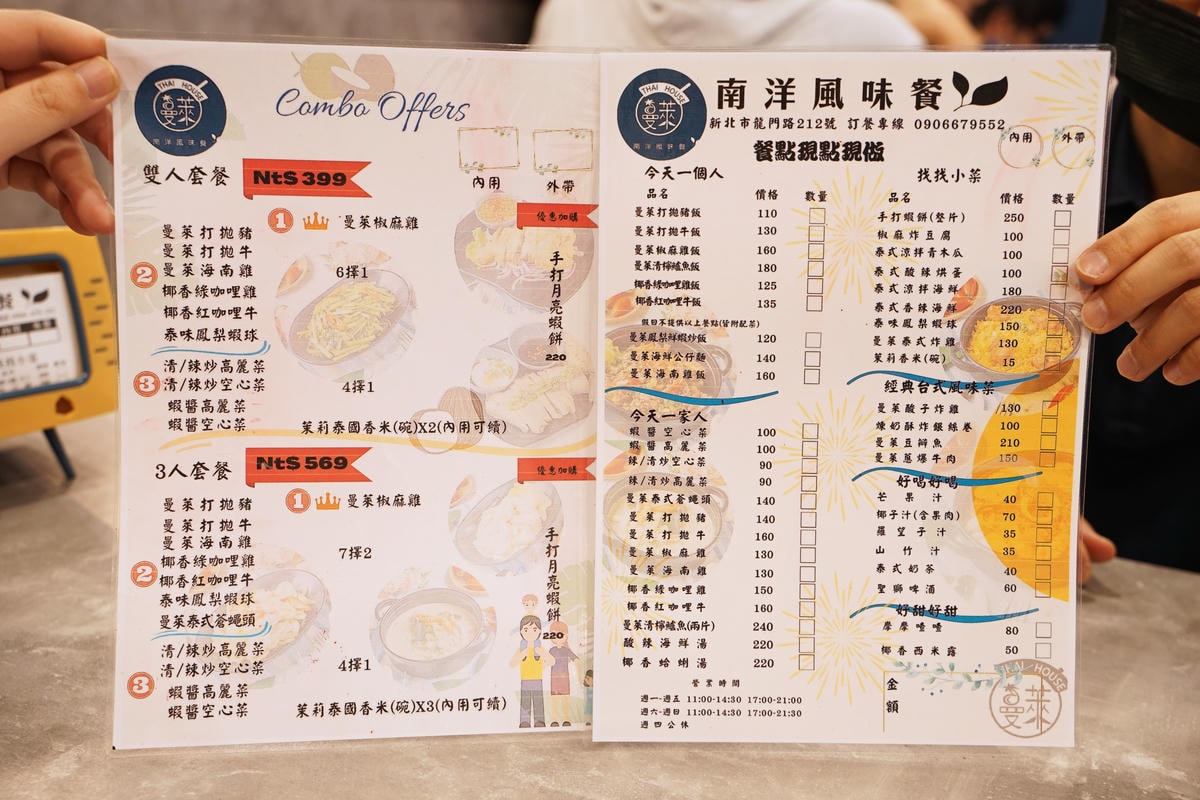 THAI HOUSE
曼萊
南洋風味餐
Combo Offers
內用
外帶
雙人套餐
Nt$ 399
優惠加購
1 曼萊椒麻雞
曼萊打拋豬
曼萊打拋牛
2 曼萊海南雞
6擇1
椰香綠咖哩雞
椰香紅咖哩牛
泰味鳳梨蝦球
手打月亮蝦餅
220
清/辣炒高麗菜
3 清/辣炒空心菜
4擇1
蝦醬高麗菜
蝦醬空心菜
茉莉泰國香米(碗)X2(內用可續)
3人套餐
Nt$ 569
優惠加購
1 曼萊椒麻雞
曼萊打拋豬
曼萊打拋牛
曼萊海南雞
7擇2
椰香綠咖哩雞
2 椰香紅咖哩牛
泰味鳳梨蝦球
曼萊泰式蒼蠅頭
手打月亮蝦餅
220
清/辣炒高麗菜
清/辣炒空心菜
4擇1
3 蝦醬高麗菜
蝦醬空心菜
茉莉泰國香米(碗)X3(內用可續)
THAI HOUSE
曼萊
南洋風味餐
南洋風味餐
新北市龍門路212號 訂餐專線 0906679552
餐點現點現做
內用
外帶
今天一個人
品名 價格 數量
曼萊打拋豬飯 110
曼萊打拋牛飯 130
曼萊椒麻雞飯 160
曼萊清檸魚飯 180
椰香綠咖哩雞飯 125
椰香紅咖哩牛飯 135
假日不提供以上餐點(皆附配菜)
曼萊鳳梨鮮蝦炒飯 120
曼萊海鮮公仔麵 140
曼萊海南雞飯 160
今天一家人
蝦醬空心菜 100
蝦醬高麗菜 100
辣/清炒空心菜 90
辣/清炒高麗菜 90
曼萊泰式蒼蠅頭 140
曼萊打拋豬 140
曼萊打拋牛 160
曼萊椒麻雞 130
曼萊海南雞 130
椰香綠咖哩雞 150
椰香紅咖哩牛 160
曼萊清檸魚(兩片) 240
酸辣海鮮湯 220
椰香蛤蜊湯 220
營業時間
週一-週五 11:00-14:30 17:00-21:00
週六-週日 11:00-14:30 17:00-21:30
週四公休
找找小菜
品名 價格 數量
手打蝦餅(整片) 250
椒麻炸豆腐 100
泰式涼拌青木瓜 100
泰式酸辣烘蛋 100
泰式涼拌海鮮 180
泰式香辣海鮮 220
泰味鳳梨蝦球 150
曼萊泰式炸雞 130
茉莉香米(碗) 15
經典台式風味菜
曼萊酸子炸雞 130
煉奶酥炸銀絲卷 100
曼萊豆瓣魚 210
曼萊蔥爆牛肉 150
好喝好喝
芒果汁 40
椰子汁(含果肉) 70
羅望子汁 35
山竹汁 35
泰式奶茶 40
聖獅啤酒 60
好甜好甜
摩摩喳喳 80
椰香西米露 50
金額
THAI HOUSE
曼萊